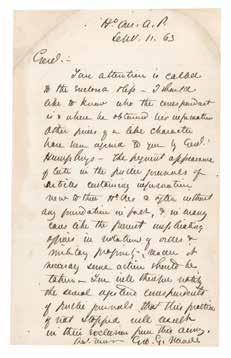 Hd Qrs. A. P.
Sept. 11. 63
Genl.:
Your attention is called
to the enclosed slip - I should
like to know who the correspondent
is & where he obtained his information
other pieces of a like character
have been signed to you by Genl.
Humphreys - the frequent appearance
of late in the public journals of
articles containing information
now to their Hd Qrs & often without
any foundation in fact, & in many
cases like the present implicating
officers in violations of orders &
military property, renders it
necessary some action should be
taken - You will therefore notify
the several agents & correspondents
of public journals that this practice
if not stopped will result
in their exclusion from this army.
Geo. G. Meade